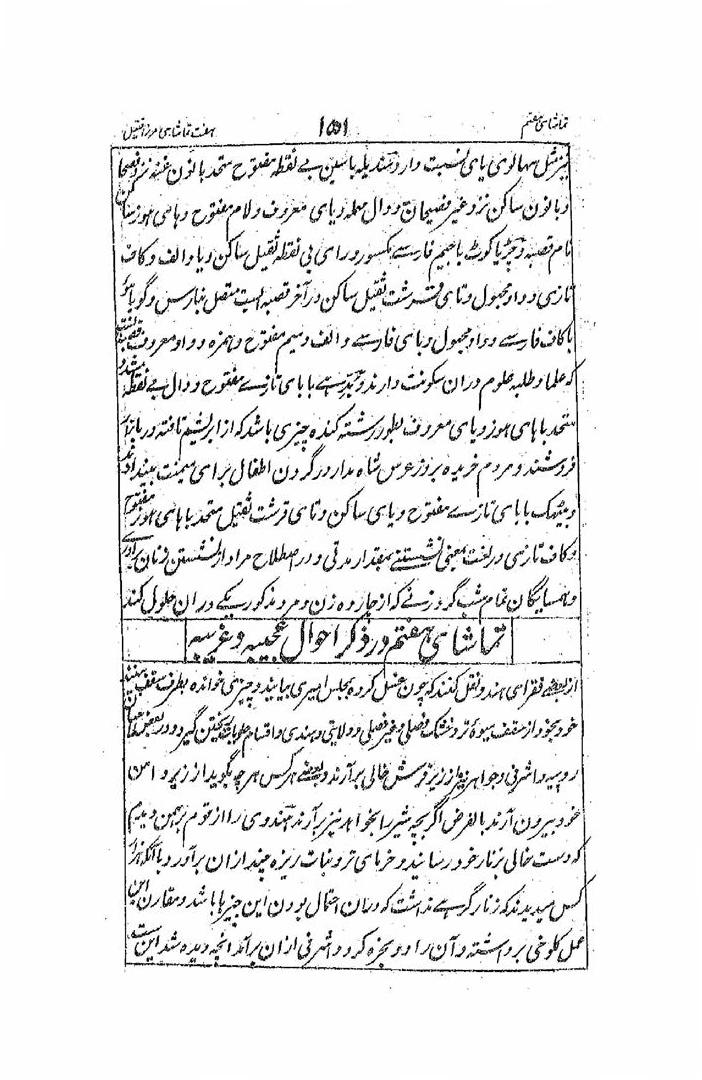 تماشای هفتم ۱۵۱ هفت تماشای مرزا قتیل
نیز مثل سهالوی یای نسبت دارد و سندیله با سین بے نقطه مفتوح متحد با نون غنه نزد فصحا
و با نون ساکن نزد غیر فصیحان و دال مهمله و یای معروف و لام مفتوح و های هوز ساکن
نام قصبه و چریاکوٹ با جیم فارسے مکسور و رای بی نقطه ثقیل ساکن و یا و الف و کاف
تازی و واو مجهول و تای قرشت ثقیل ساکن در آخر قصبه ایست متصل بنارس و گوپامؤ
با کاف فارسے و واو مجهول و بای فارسے و الف و میم مفتوح و همزه و واو معروف قصبه ایست
که علما و طلبه علوم دران سکونت دارند و بدهے با بای تازے مفتوح و دال بے نقطه مشدد
متحد با های هوز و یای معروف بطور رشته کنده چیزی باشد که از ابریشم تافته در بازار
فروشند و مردم خریده بروز عرس شاه مدار در گردن اطفال برای میمنت بیندازند
و بیٹھک با بای تازے مفتوح و یای ساکن و تای قرشت ثقیل متحد با های هوز مفتوح
و کاف تازی در لغت بمعنی نشستنے بمقدار مدتی و در اصطلاح مراد از نشستن زنان برادری
و همسایگان تمام شب گرد زنے که از جمله ده زن و مرد مذکور یکے در ان حلول کند
تماشای هفتم در ذکر احوال عجیبه و غریبه
از بعضے فقرای هند و نقل کنند که چون غسل کرده بمجلس امیری بیایند و چیزی خوانده بطرف سقف بینند
خود بخود از سقف میوهٔ تر و خشک فصلی و غیر فصلی و ولایتی و هندی و اقسام حلویات ریختن گیرد و در بعض جاها
روپیه و اشرفی و جواهر نیز از زیر فرش خالی برآرند و بعضے هر کس هر چه بگوید از زیر دامن
خود بیرون آرند بالفرض اگر بچه شیر را بخواهد نیز برآرند هندوی را از قوم برهمن دیدیم
که دست خالی بزنار خود رسانید و خرمای تر و نبات ریزه چند ازان برآورد با آنکه هزار
کس میدیدند که زنار گرهے نداشت که دران احتمال بودن این چیزها باشد و مقارن این
عمل کلوخی برداشته و آن را دو پجزه کرد و اشرفی ازان برآمد انچه دیده شد این ست